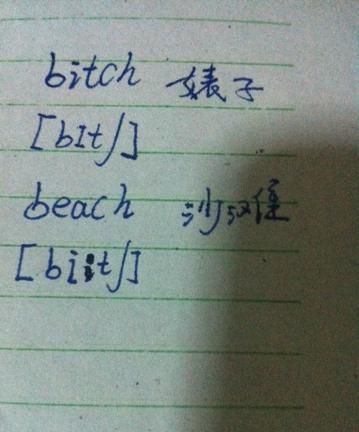 bitch 婊子
[bɪtʃ]
beach 沙汉堡
[bi:tʃ]